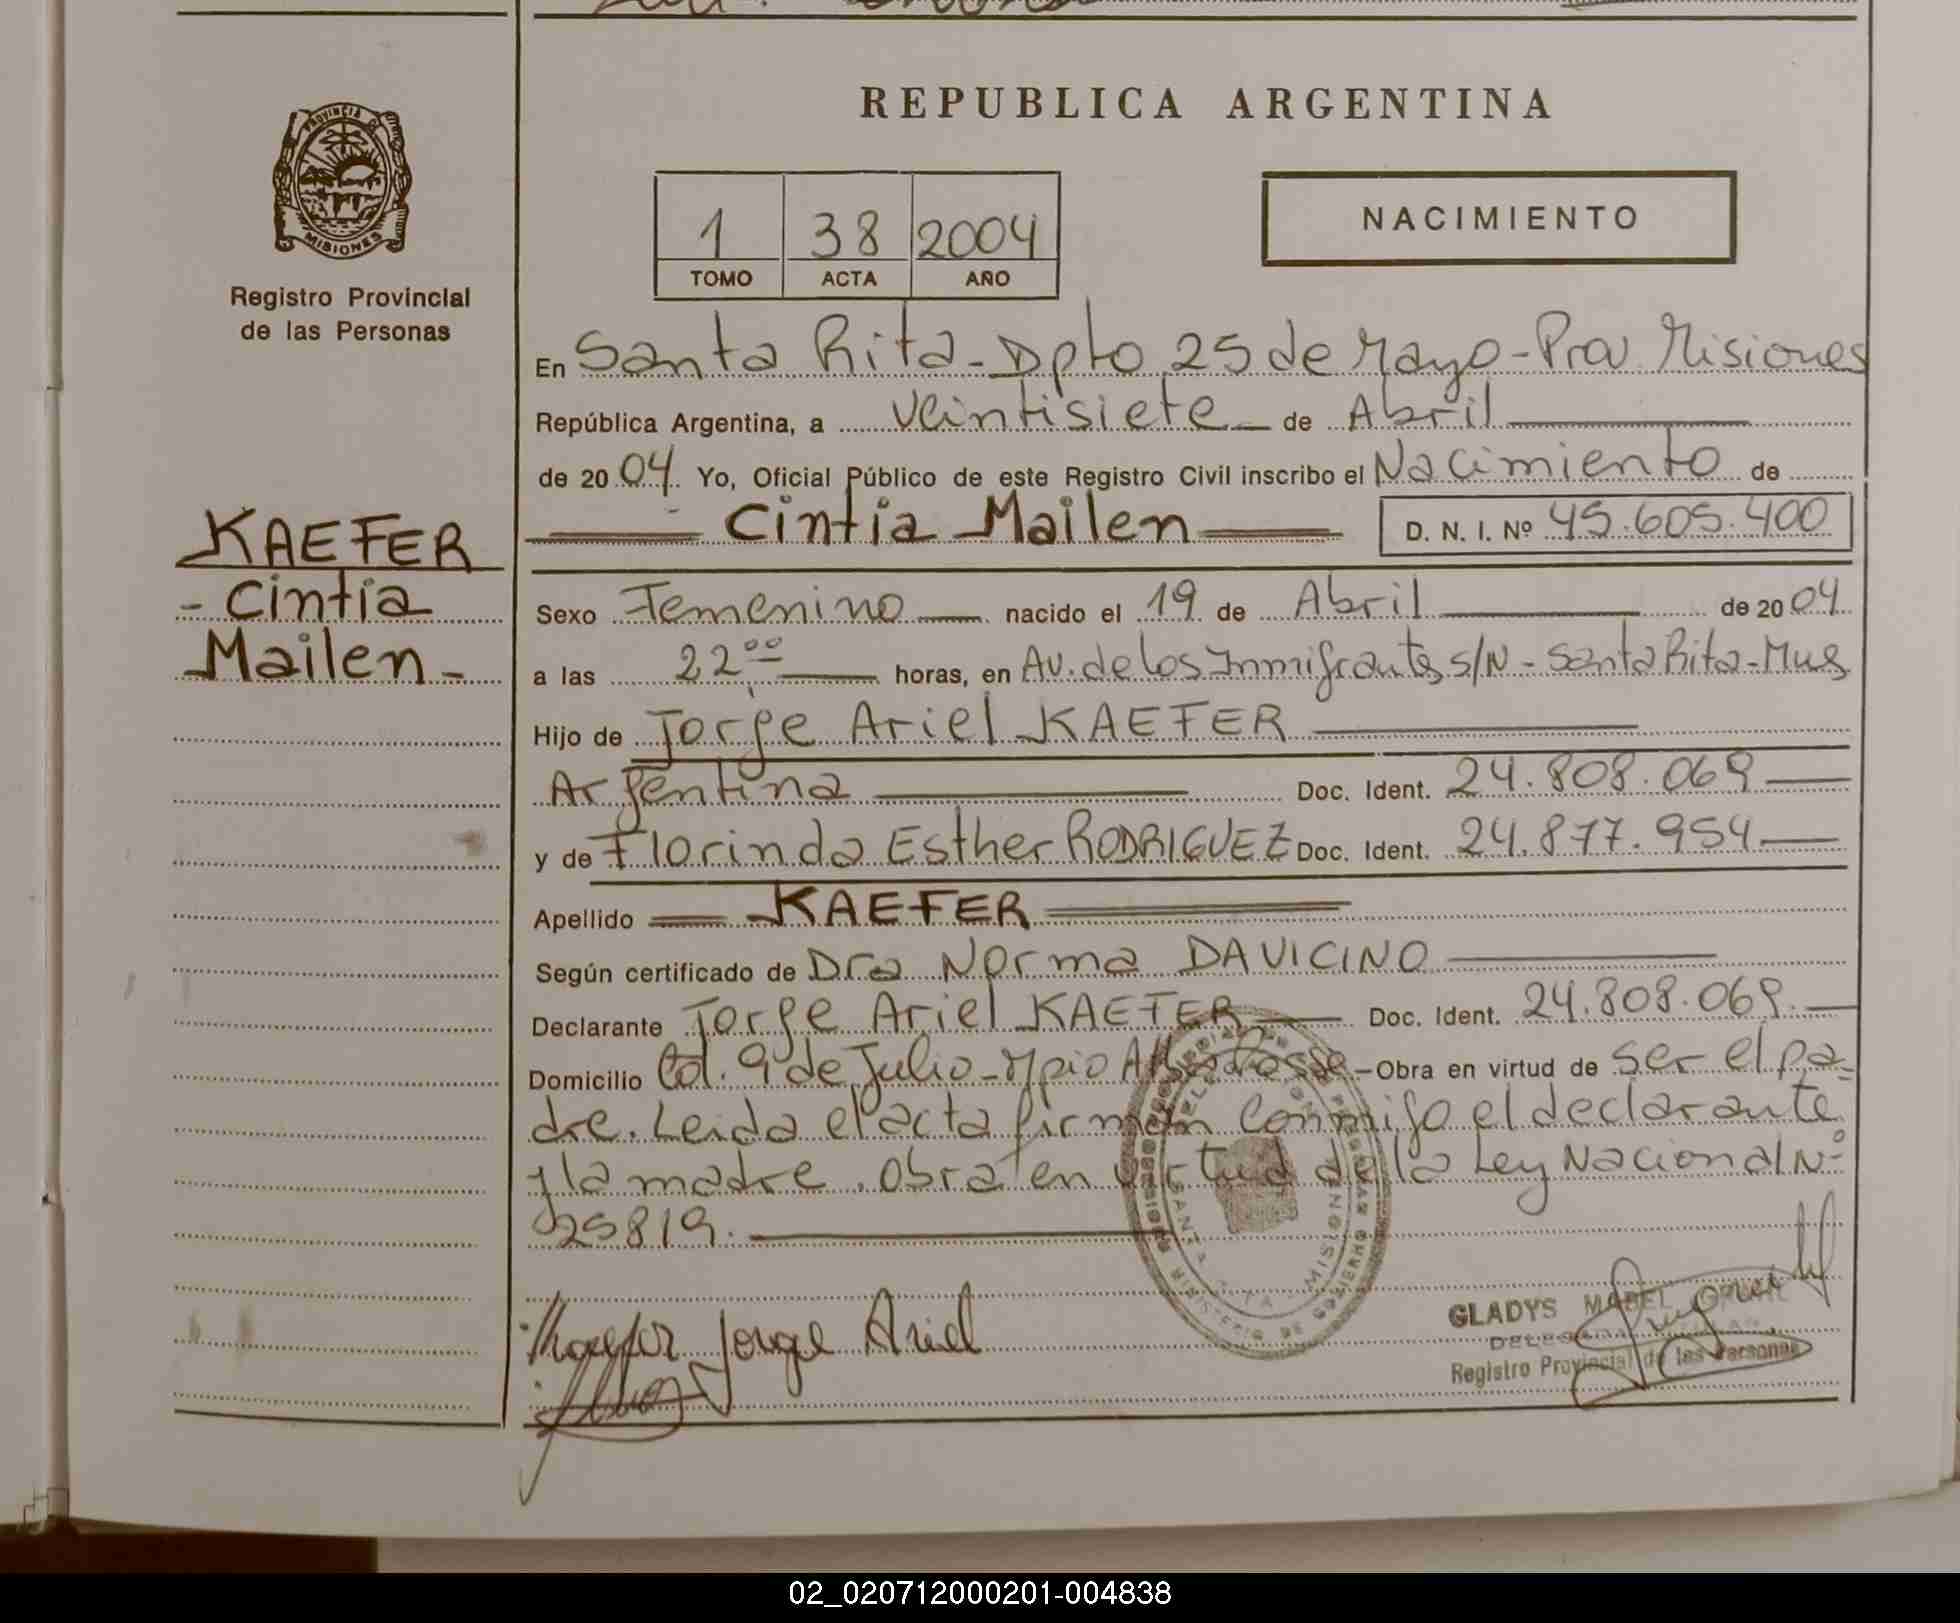 PROVINCIA DE
MISIONES
Registro Provincial
de las Personas
KAEFER
- Cintia
Mailen -
REPUBLICA ARGENTINA
1 38 2004
TOMO ACTA AÑO
NACIMIENTO
En Santa Rita - Dpto 25 de Mayo - Prov. Misiones
República Argentina, a veintisiete - de Abril
de 2004 Yo, Oficial Público de este Registro Civil inscribo el Nacimiento de
Cintia Mailen D. N. I. Nº 45.605.400
Sexo Femenino nacido el 19 de Abril de 2004
a las 22,00 horas, en Av. de los Inmigrantes s/N - Santa Rita - Mnes
Hijo de Jorge Ariel KAEFER
Argentina Doc. Ident. 24.808.069
y de Florinda Esther RODRIGUEZ Doc. Ident. 24.877.954
Apellido KAEFER
Según certificado de Dra Norma DAVICINO
Declarante Jorge Ariel KAEFER Doc. Ident. 24.808.069.
Domicilio Col. 9 de Julio - Mpio Alba Posse - Obra en virtud de ser el pa-
dre. Leida el acta firman conmigo el declarante
y la madre. Obra en virtud de la Ley Nacional Nº
25819.
Kaefer Jorge Ariel
GLADYS MABEL
Registro Provincial de las Personas
SANTA RITA - MISIONES
MINISTERIO DE GOBIERNO
02_020712000201-004838